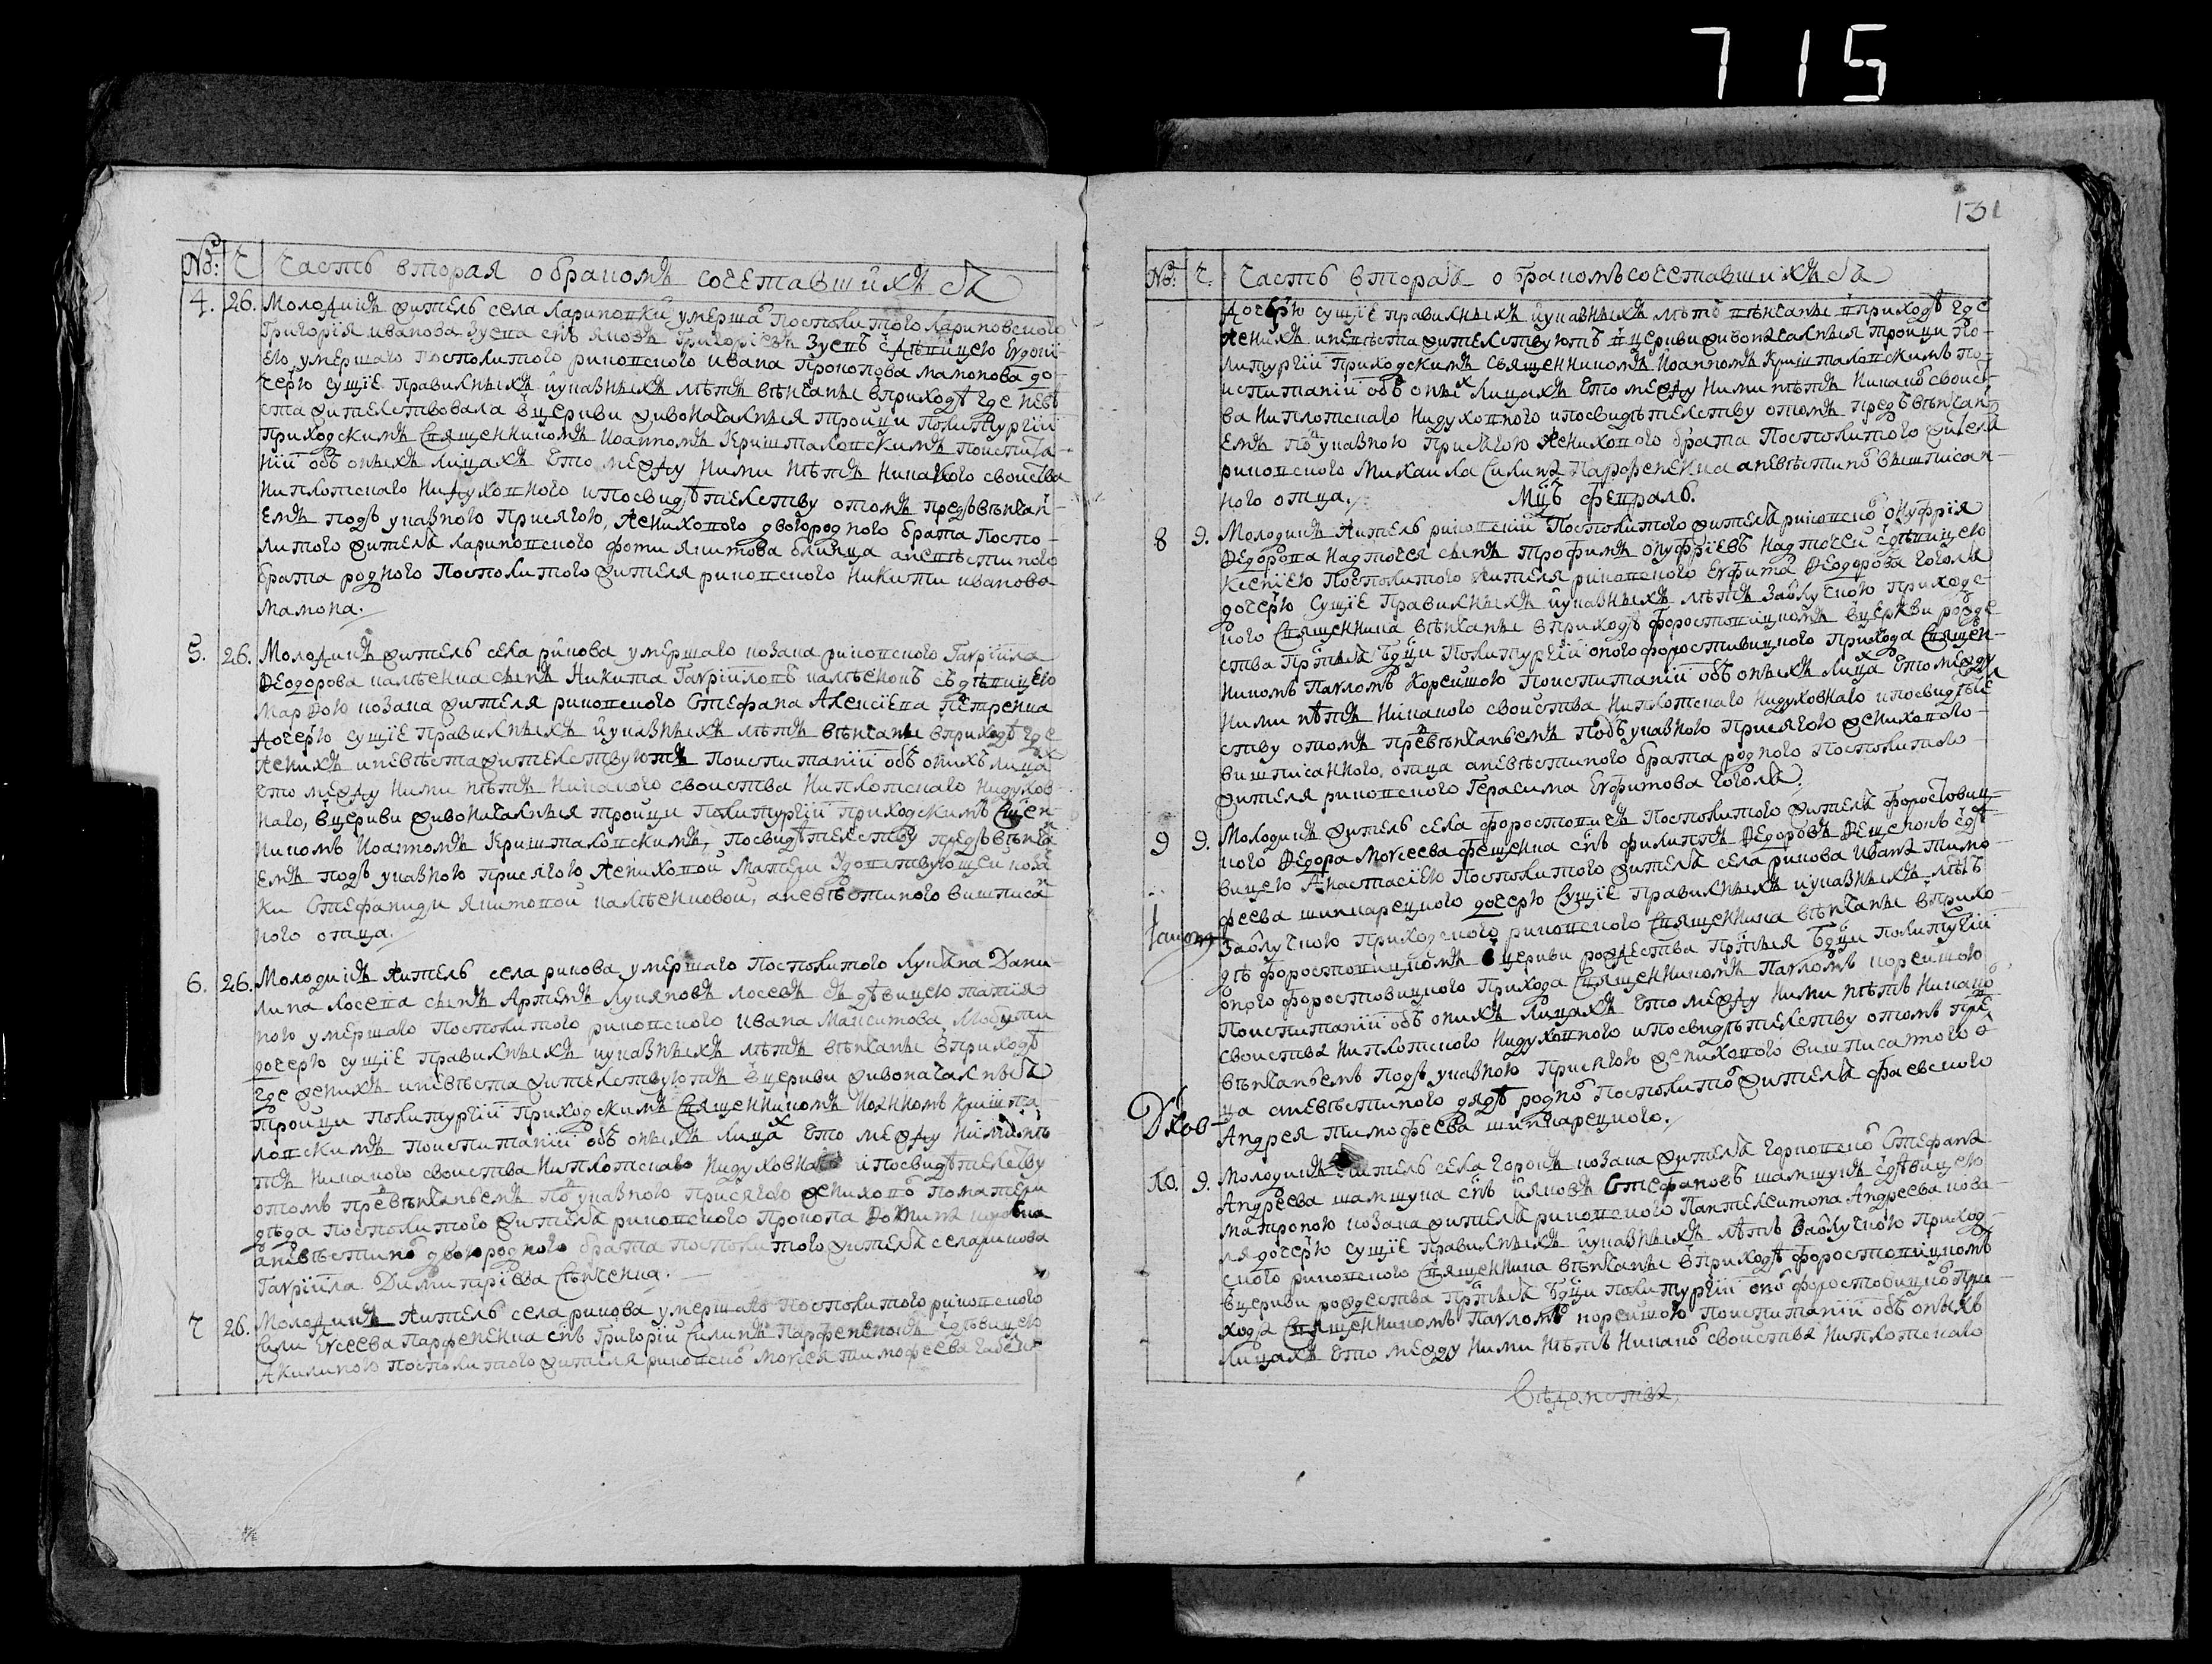 715
№: Ч Часть вторая о бракомъ сочетавшихъ ся
4. 26. Молодикъ житель села Лариновки умерша посполитого лариновского
Григорія Иванова Зуепа снъ Яковъ Григоріевъ Зуепъ з дѣвицею Евдокі-
ею, умершаго посполитого риковского Ивана Прокопова Мамонова до-
черю сущіе правилныхъ и указныхъ лѣтъ вѣнчаны в приходѣ где невѣ
ста жителствовала в церкви живоначалныя Тройци по литургіи
приходскимъ священникомъ Иоанномъ Кришталовскимъ по испита-
ніи объ оныхъ лицахъ что между ними нѣтъ никакого свойства
ни плотскаго ни духовного и по свидѣтелству о томъ предъ вѣнчан-
емъ подъ указною присягою, женихового двоюродного брата поспо-
литого жителя лариновского Фоми Якимова а невѣстиного
брата родного посполитого жителя риковского Никити Иванова
Мамона.
5. 26. Молодикъ житель села Рикова умершаго козака риковского Гавріила
Ѳеодорова сынъ Никита Гавріиловъ съ дѣвицею
Марѳою козака жителя риковского Стефана Алексіева Петренка
дочерю сущіе правилныхъ и указныхъ лѣтъ вѣнчаны в приходѣ где
женихъ и невѣста жителствуютъ по испитаніи объ онихъ лицах
что между ними нѣтъ никакого свойства ни плотскаго ни духов-
наго, в церкви живоначалныя Тройци по литургіи приходскимъ свщен-
никомъ Иоанномъ Кришталовскимъ, по свидѣтелству предъ вѣнчан
емъ подъ указною присягою жениховой матери удовствующей коза
ки Стефаниди Якимовой, а невѣстиного вишписан
ного отца.
6. 26. Молодикъ житель села Рикова умершаго посполитого Лукяна Дани-
лина Лосева сынъ Артемъ Лукяновъ Лосевъ съ дѣвицею Татія
ною умершаго посполитого риковского Ивана Максимова
дочерю сущіе правилныхъ и указныхъ лѣтъ вѣнчаны в приходѣ
где женихъ и невѣста жителствуютъ в церкви живоначалныя
Тройци по литургіи приходскимъ священникомъ Иоанномъ Кришта-
ловскимъ по испитаніи объ оныхъ лицах что между ними нѣ
тъ никакого свойства ни плотскаго ни духовнаго и по свидѣтелству
о томъ пред вѣнчаньемъ под указною присягою жениховог по матери
дѣда посполитого жителя риковского Прокопа
а невѣстиног двоюродного брата посполитого жителя села Рикова
Гавріила Димитріева
7 26. Молодикъ житель села Рикова умершаго посполитого риковского
Сили Евсеева Парфененка снъ Григорій Силинъ Парфененокъ з дѣвицею
Акилиною посполитого жителя риковског Мойсея Тимофеева
131
№. Ч. Часть вторая о бракомъ сочетавшихъ ся
дочерю сущіе правилныхъ и указныхъ лѣтъ вѣнчаны в приходѣ где
женихъ и невѣста жителствуютъ в церкви живоначалныя Тройци по
литургіи приходскимъ священникомъ Иоанномъ Кришталовскимъ по
испитаніи объ оных лицахъ что между ними нѣтъ никаког свойст
ва ни плотскаго ни духовного и по свидѣтелству о томъ предъ вѣнчан
емъ под указною присягою женихового брата посполитого жителя
риковского Михаила Силина Парфененка а невѣстиног вишписан-
ного отца.
Мцъ февраль.
8 9. Молодикъ житель риковскій посполитого жителя риковског Онуфрія
Ѳедорова Надточея сынъ Трофимъ Онуфріевъ Надточей з дѣвицею
Ксеніею посполитого жителя риковского Евфима Ѳеодорова Гоголя
дочерю сущіе правилныхъ и указныхъ лѣтъ за облучкою приходс-
кого священника вѣнчаны в приходѣ форостовицкомъ в церкви рожде
ства прстыя Бдци по литургіи оного форостовицкого прихода священ-
никомъ Павломъ Корейшою по испитаніи объ оныхъ лицах что между
ними нѣтъ никакого свойства ни плотскаго ни духовнаго и по свидѣтел
ству о томъ пред вѣнчаньемъ подъ указною присягою женихового
вишписанного, отца а невѣстиного брата родного посполитого
жителя риковского Герасима Евфимова Гоголя.
9 9. Молодикъ житель села Форостовичъ посполитого жителя форостовиц-
кого Ѳедора Мойсеева снъ Филиппъ Ѳедоровъ з дѣ-
вицею Анастасіею посполитого жителя села Рикова Ивана Тимо-
феева дочерю сущіе правилныхъ и указныхъ лѣтъ
за облучкою приходского риковского священника вѣнчаны в прихо-
дѣ форостовицкомъ в церкви рождества прстыя Бдци по литургіи
оного форостовицкого прихода священникомъ Павломъ Корейшою
по испитаніи объ онихъ лицахъ что между ними нѣтъ никаког
свойства ни плотского ни духовного и по свидѣтелству о томъ пре
вѣнчаньемъ подъ указною присягою женихового вишписатого о
ца а невѣстиного дядѣ родног посполитог жителя фаевского
Андрея Тимофеева
Дхов-
10. 9. Молодикъ житель села Горокъ козака жителя горковског Стефана
Андреева Шамшура снъ Ияковъ Стефановъ Шамшукъ з дѣвицею
Матроною козака жителя риковского Пантелеимона Андреева Кова-
ля дочерю сущіе правилныхъ и указныхъ лѣтъ за облучкою приход-
ского риковского священника вѣнчаны в приходѣ форостовицкомъ
в церкви рождества прстыя Бдци по литургіи оног форостовицког при-
хода священникомъ Павломъ Корейшою по испитаніи объ оныхъ
лицахъ что между ними нѣтъ никаког свойства ни плотскаго